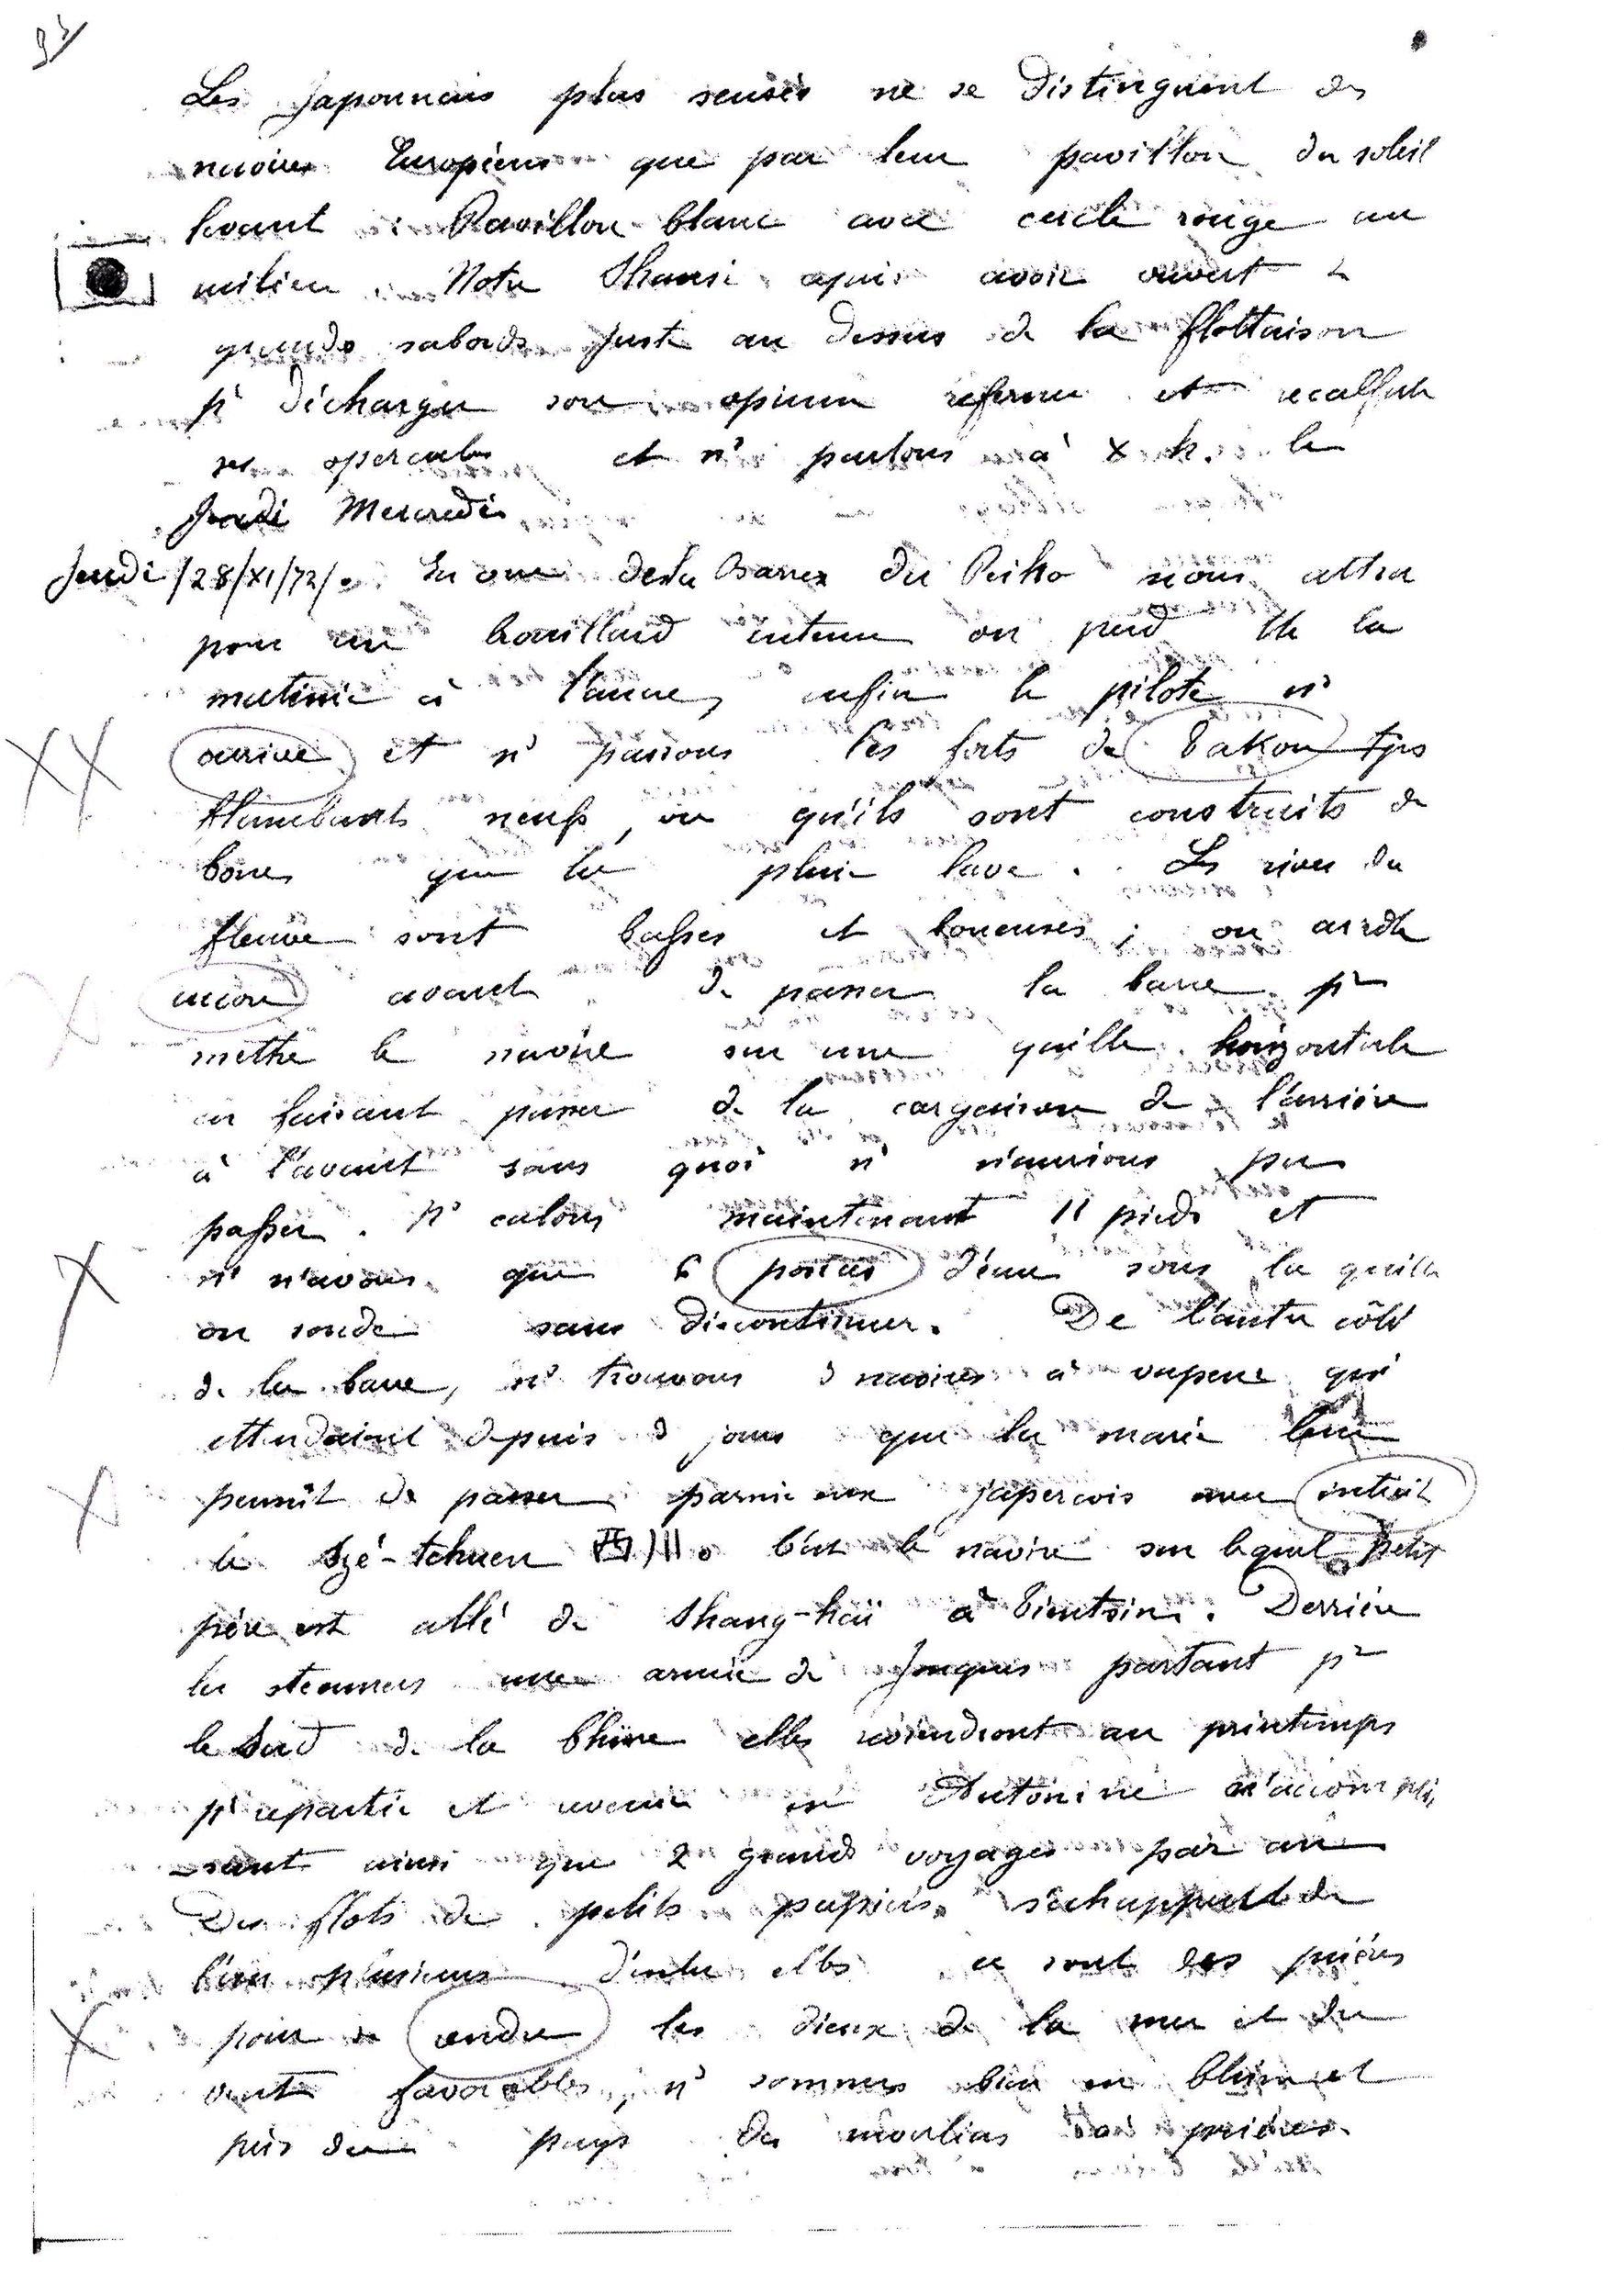 93
Les Japonnais plus sensés ne se distinguent des
navires Européens que par leur pavillon du soleil
levant : Pavillon blanc avec cercle rouge au
milieu. Notre Shansi, après avoir ouvert 2
grands sabords juste au dessus de la flottaison
pr décharger son opium referme et recalfate
ses opercules et ns partons à X h. le
Jeudi Mercredi
Jeudi /28/XI/72/. En vue de la Barre du Peiho nous attra
pons un brouillard intense on perd tte la
matinée à l'ancre, enfin le pilote ns
arrive et ns passons les forts de Takou tjrs
flambants neufs, vu qu'ils sont construits de
boue que la pluie lave. Les rives du
fleuve sont basses et boueuses ; on arrête
encore avant de passer la barre pr
mettre le navire sur une quille horizontale
en faisant passer de la cargaison de l'arrière
à l'avant sans quoi ns n'aurions pu
passer. Ns calons maintenant 11 pieds et
ns n'avons que 6 pouces d'eau sous la quille
on sonde sans discontinuer. De l'autre côté
de la barre, ns trouvons 3 navires à vapeur qui
attendaient depuis 3 jours que la marée leur
permit de passer parmi eux j'aperçois avec intérêt
le Szé-tchuen 四川. C'est le navire sur lequel petit
père est allé de Shang-haï à Tientsin. Derrière
les steamers une armée de Jonques partant pr
le Sud de la Chine elles reviendront au printemps
pr repartir et revenir en Automne n'accomplis
-sant ainsi que 2 grands voyages par an
Des flots de petits papiers s'échappent de
l'une plusieurs d'entre elles ce sont des prières
pour rendre les dieux de la mer et du
vent favorables, ns sommes bien en Chine et
près du pays des moulins à prières